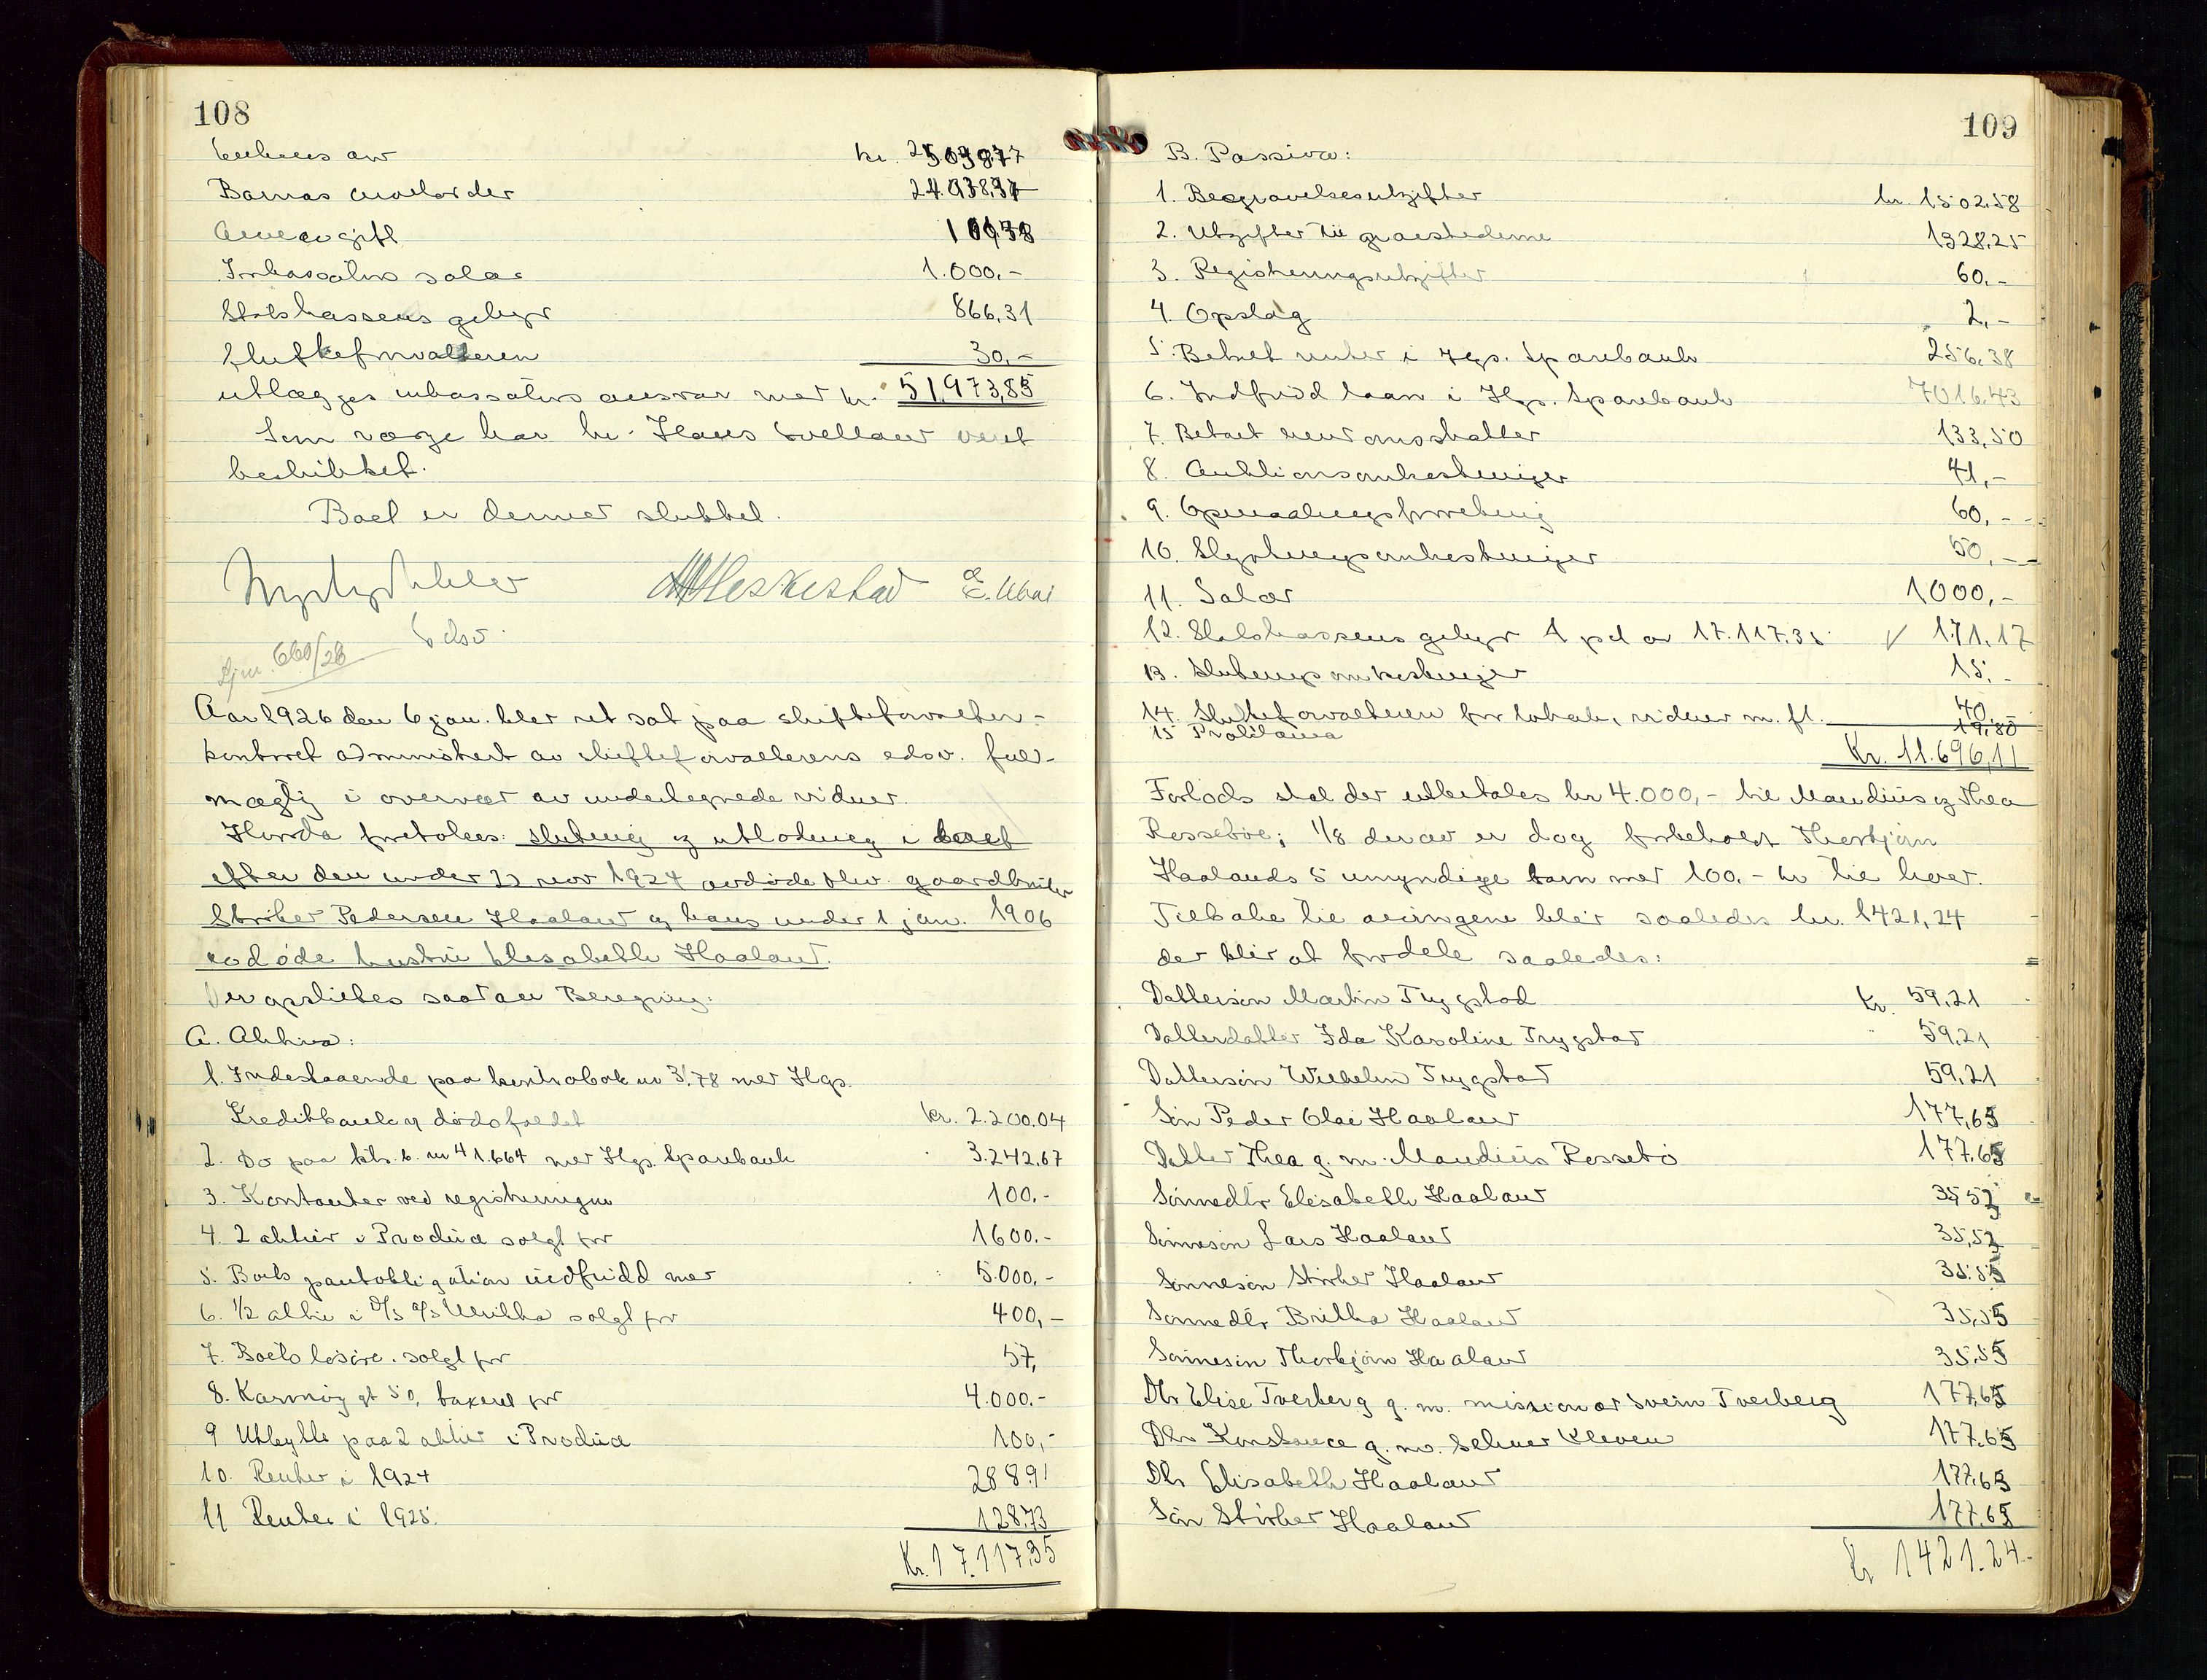 108
Enkens arv kr. 25.039,77
Barnas arvelodder 24.938,37
Arveavgift
Inkassators salær 1.000.-
Statskassens gebyr 866,31
Skifteforvalteren 30,-
utlægges inkassators ansvar med kr. 51,973,85
Som værge har hr. Haaland været
beskikket.
Boet er dermed sluttet.
Heskestad
Edsv.
Sjm. 660/28
Aar 1926 den 6 jan. blev ret sat paa skifteforvalter-
kontoret administrert av skifteforvalterens edsv. fuld-
mægtig i overvær av undertegnede vidner.
Hvorda foretokes: slutning og utlodning i boet
efter den under 22 nov 1924 avdøde blw. gaardbruker
Størker Pedersen Haaland og hans under 1 jan. 1906
avdøde hustru Elisabeth Haaland.
Der opstilles saadan Beregning:
A. Aktiva:
1. Indestaaende paa kontrabok nr 3178 med Hgs.
Kreditbank og dødsfaldet kr. 2.200.04
2. Do paa ktr. b. nr 41.664 med Hgs. Sparebank 3.242,67
3. Kontanter ved registreringen 100.-
4. 2 aktier i Prodúa solgt for 1600.-
5. Boets pantobligation indfridd med 5.000,-
6. 1/2 aktie i D/S A/S solgt for 400,-
7. Boets løsøre. solgt for 57,
8. Karmøy gt 50, taxeret for 4.000.-
9 Utbytte paa 2 aktier i Prodúa 100,-
10. Renter i 1924 288.91
11 Renter i 1925. 128,73
Kr. 17.117,35
109
B. Passiva:
1. Begravelsesutgifter kr. 1502.58
2. Utgifter til gravstederne 1328,25
3. Registreringsutgifter 60.-
4. Opslag 2,-
5. Betalt renter i Hgs. Sparebank 256.38
6. Indfridd laan i Hgs. Sparebank 7016.43
7. Betalt restanseskatter 133,50
8. Auktionsomkostninger 41,-
9. Opmaalingsforretning 60,-
10. Skyldningsomkostninger 50,-
11. Salær 1000,-
12. Statskassens gebyr 1 pct av 17.117.35 171,17
13. Slutningsomkostninger 15,-
14. Skifteforvalteren for lokale, vidner m. fl. 40,-
15 Proklama 19,80
Kr. 11.696,11
Forlods skal der utbetales kr 4.000,- til Maudius og Thea
Rossebø; 1/8 derav er dog forbeholdt Thorbjørn
Haalands 5 umyndige barn med 100.- kr til hver.
Tilbake til arvingene blir saaledes kr. 1421,24
der blir at fordele saaledes:
Dattersøn Martin Trygstad kr. 59,21
Datterdatter Ida Karoline Trygstad 59,21
Dattersøn Wilhelm Trygstad 59,21
Søn Peder Olai Haaland 177,65
Datter Thea g. m. Maudius Rossebø 177,65
Sønnedtr Elisabeth Haaland 35,52
Sønnesøn Lars Haaland 35,52
Sønnesøn Størker Haaland 35.55
Sønnedtr Britha Haaland 35,55
Sønnesøn Thorbjørn Haaland 35,55
Dtr Elise Tverberg g. m. missionær Svein Tverberg 177,65
Dtr Konstance g. m. Selmer Kleven 177,65
Dtr Elisabeth Haaland 177,65
Søn Størker Haaland 177,65
Kr 1421.24.-